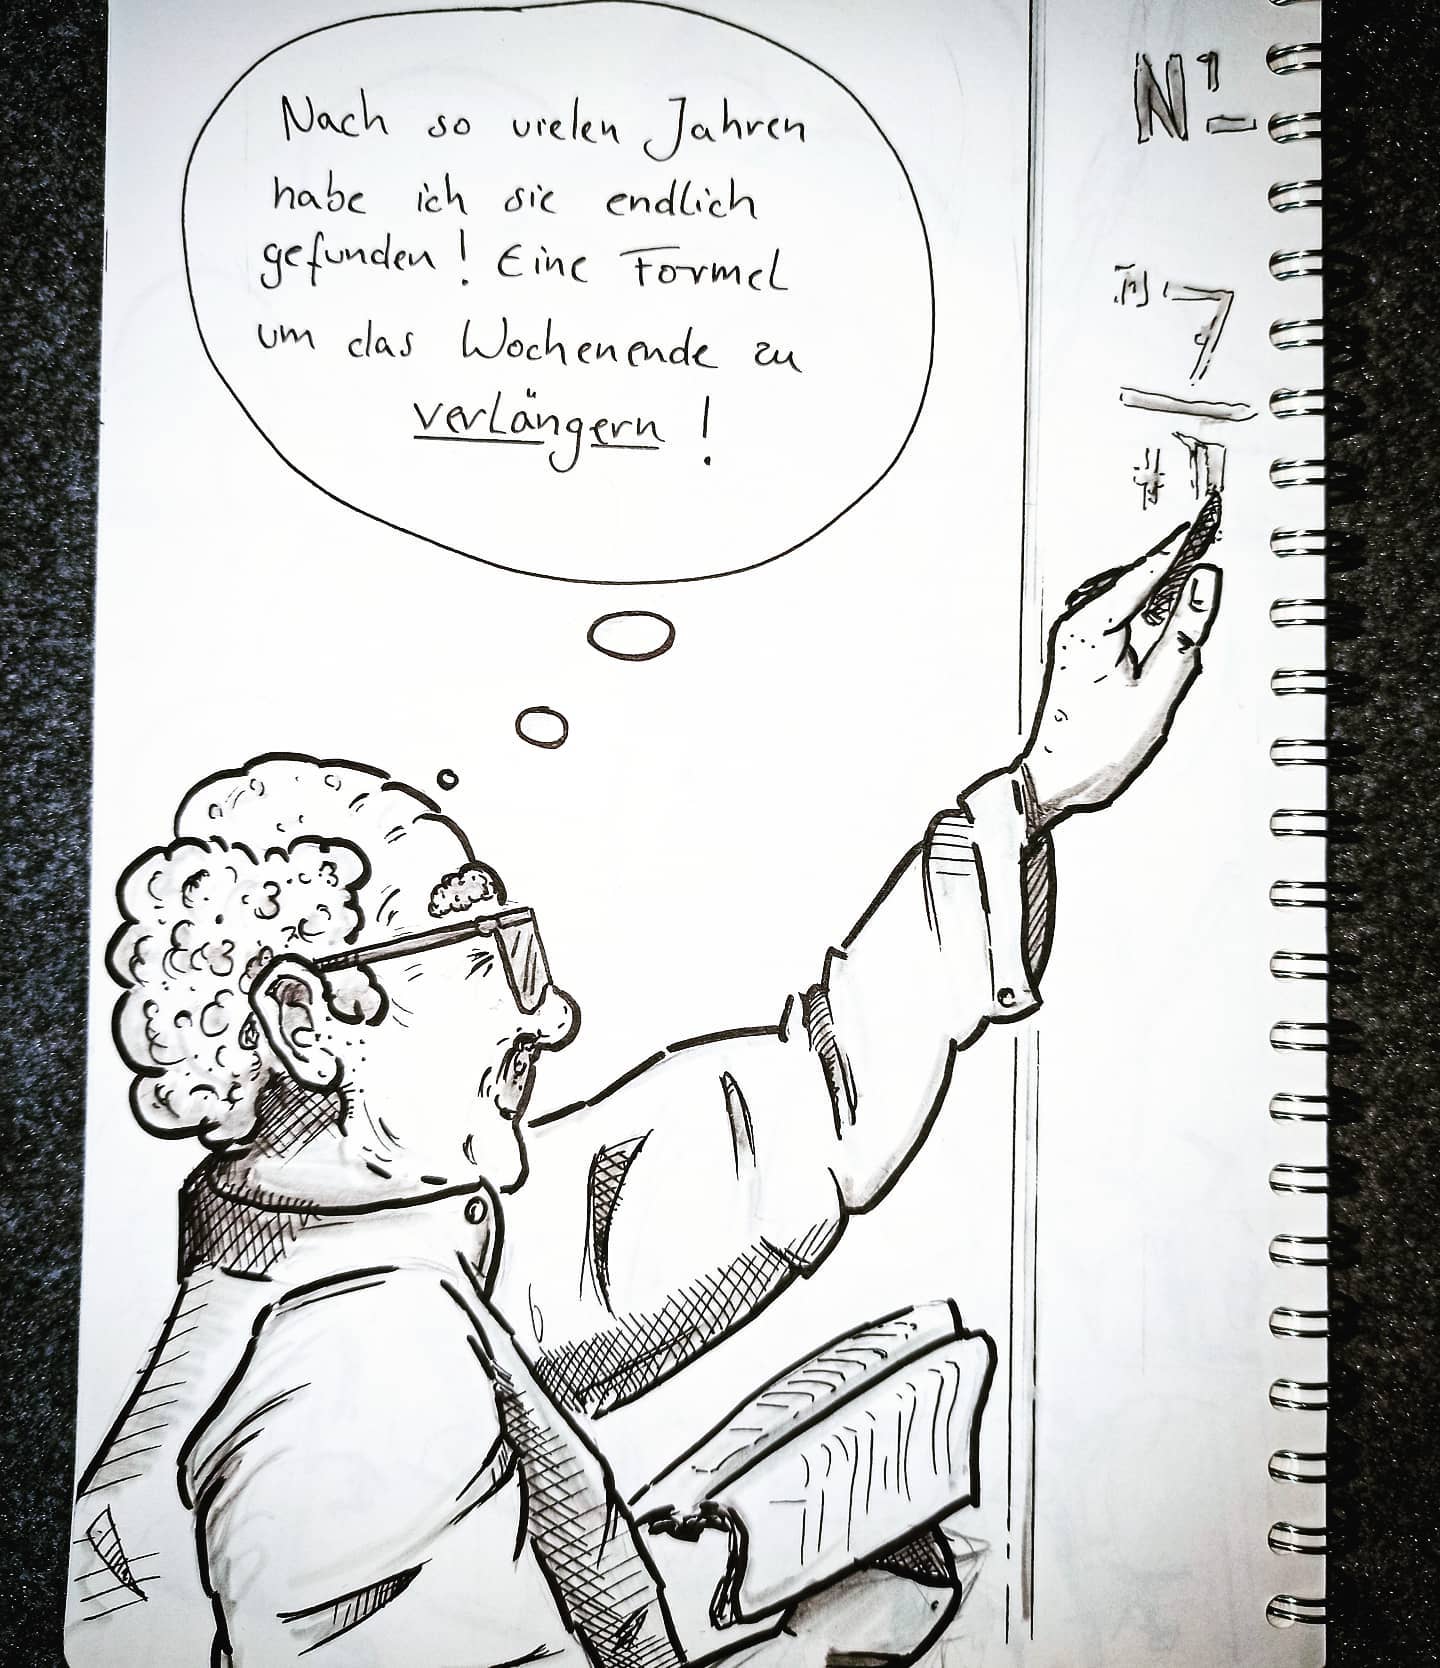 Nach so vielen Jahren
habe ich sie endlich
gefunden! Eine Formel
um das Wochenende zu
verlängern!
N¹-
7
#